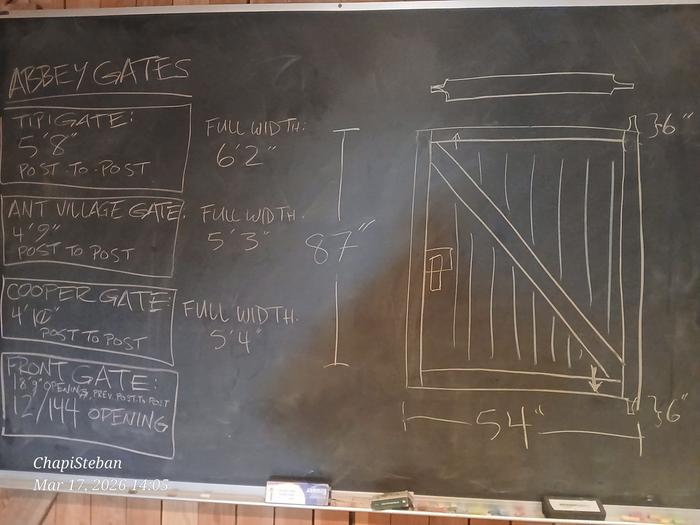 ABBEY GATES
TIPI GATE:
5'8"
POST-TO-POST
FULL WIDTH:
6'2"
ANT VILLAGE GATE:
4'9"
POST TO POST
FULL WIDTH:
5'3"
COOPER GATE:
4'10"
POST TO POST
FULL WIDTH:
5'4"
FRONT GATE:
18'9" OPENING, PREV. POST TO POST
12/144 OPENING
87"
6"
6"
54"
ChapiSteban
Mar 17, 2026 14:05